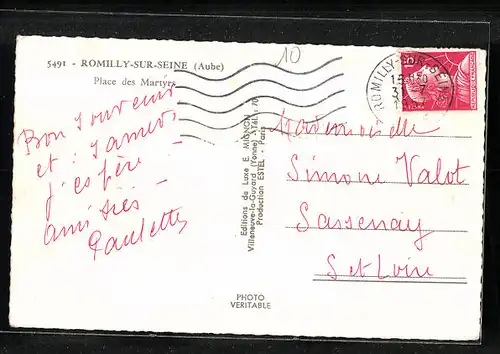 5491 - ROMILLY-SUR-SEINE (Aube)
Place des Martyrs
10
ROMILLY-SUR-SEINE
Bon souvenir
et à
j'espère -
amitiés -
Paulette
Editions de Luxe E. MIGNON
Villeneuve-la-Guyard (Yonne)
Production ESTEL - Paris
PHOTO
VERITABLE
Mademoiselle
Simone Valot
Sassenay
S et Loire